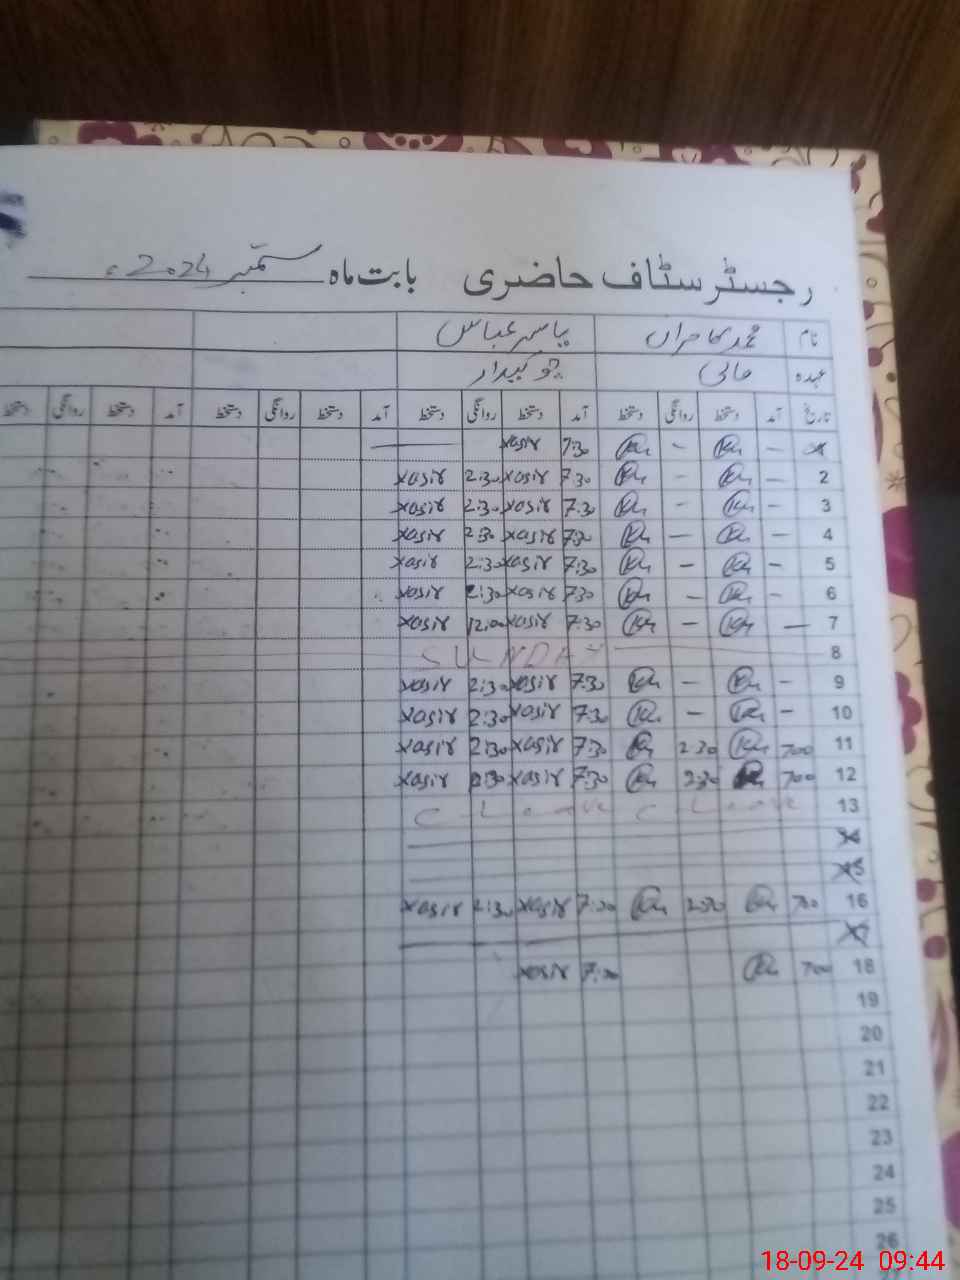 رجسٹر سٹاف حاضری بابت ماہ ستمبر 2024ء
نام محمد کامران یاسر عباس
عہدہ مالی چوکیدار
تاریخ آمد دستخط روانگی دستخط آمد دستخط روانگی دستخط آمد دستخط روانگی دستخط آمد دستخط روانگی دستخط
- - 7:30 Yasir
2 - - 7:30 Yasir 2:30 Yasir
3 - - 7:30 Yasir 2:30 Yasir
4 - - 7:30 Yasir 2:30 Yasir
5 - - 7:30 Yasir 2:30 Yasir
6 - - 7:30 Yasir 2:30 Yasir
7 - - 7:30 Yasir 12:00 Yasir
8 SUNDAY
9 - - 7:30 Yasir 2:30 Yasir
10 - - 7:30 Yasir 2:30 Yasir
11 700 2:30 7:30 Yasir 2:30 Yasir
12 700 2:30 7:30 Yasir 2:30 Yasir
13 C Leave C Leave
14
15
16 700 2:30 7:30 Yasir 2:30 Yasir
17
18 700 Yasir
19
20
21
22
23
24
25
26
18-09-24 09:44